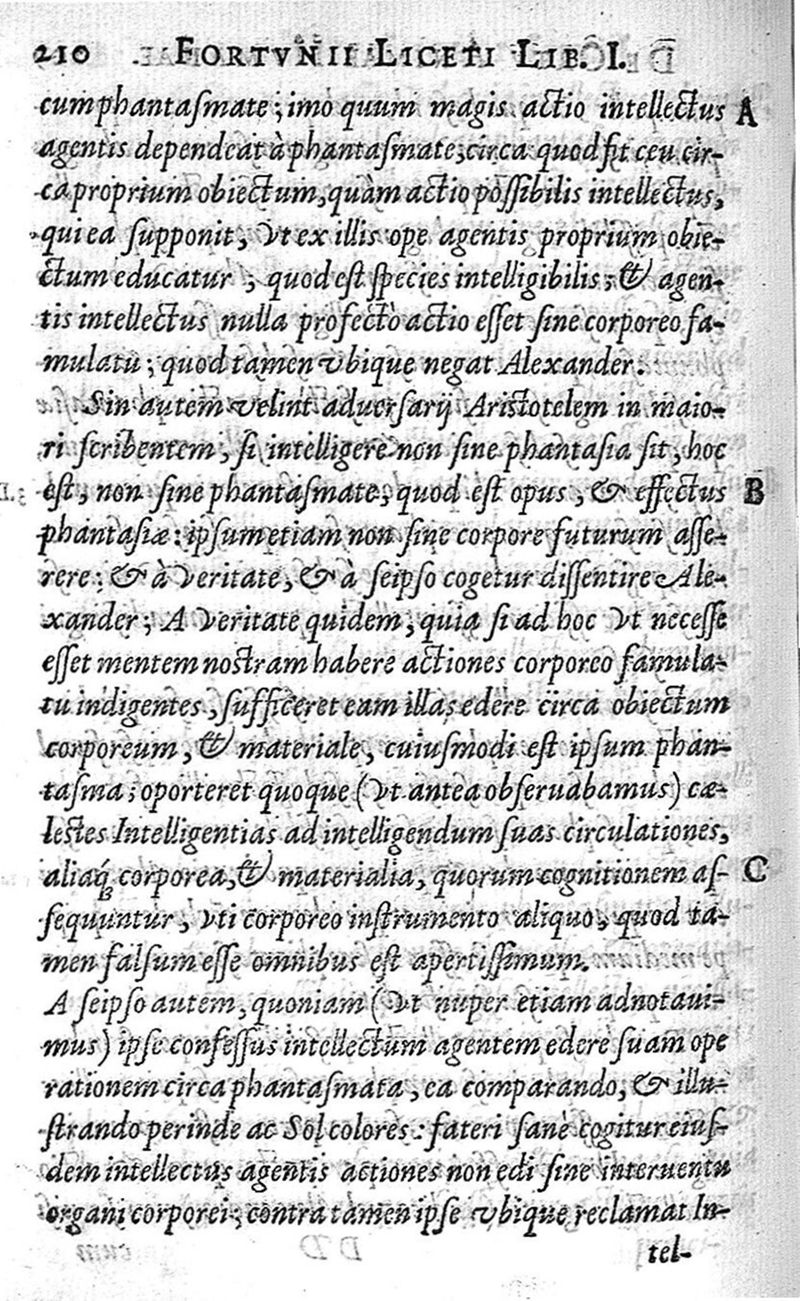 210 FORTVNII LICETI LIB. I.
cum phantaſmate; imo quum magis actio intellectus A
agentis dependeat à phantaſmate; circa quod fit ceu cir-
ca proprium obiectum, quàm actio poſſibilis intellectus,
qui ea ſupponit, vt ex illis ope agentis proprium obie-
ctum educatur; quod eſt ſpecies intelligibilis; & agen-
tis intellectus nulla profectò actio eſſet ſine corporeo fa-
mulatu; quod tamen vbique negat Alexander.
Sin autem velint aduerſarij Ariſtotelem in maio-
ri ſcribentem, ſi intelligere non ſine phantaſia ſit, hoc
eſt, non ſine phantaſmate, quod eſt opus, & effectus B
phantaſiæ: ipſum etiam non ſine corpore futurum aſſe-
rere: & à veritate, & à ſeipſo cogetur diſſentire Ale-
xander; A veritate quidem, quia ſi ad hoc vt neceſſe
eſſet mentem noſtram habere actiones corporeo famula-
tu indigentes, ſufficeret eam illas edere circa obiectum
corporeum, & materiale, cuiuſmodi eſt ipſum phan-
taſma; oporteret quoque (vt antea obſeruabamus) cæ-
leſtes Intelligentias ad intelligendum ſuas circulationes,
aliaq́; corporea, & materialia, quorum cognitionem aſ- C
ſequuntur, vti corporeo inſtrumento aliquo, quod ta-
men falſum eſſe omnibus eſt apertiſſimum.
A ſeipſo autem, quoniam (vt nuper etiam adnotaui-
mus) ipſe confeſſus intellectum agentem edere ſuam ope
rationem circa phantaſmata, ea comparando, & illu-
ſtrando perinde ac Sol colores: fateri ſanè cogitur eiuſ-
dem intellectus agentis actiones non edi ſine interuentu
organi corporei; contra tamen ipſe vbique reclamat In-
tel-